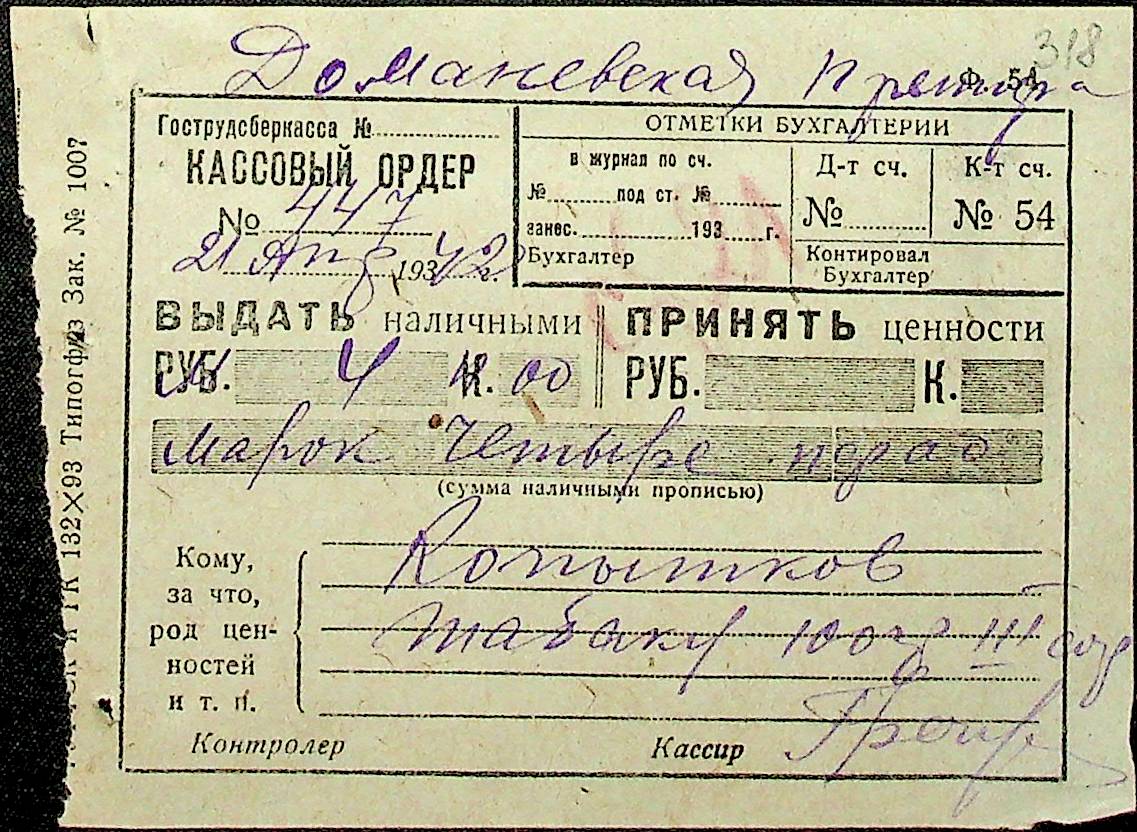 318
Доманевская Претура
Ф. 54
Гострудсберкасса №
КАССОВЫЙ ОРДЕР
№ 447
21 Апр 1942 г.
ОТМЕТКИ БУХГАЛТЕРИИ
в журнал по сч.
№ под ст. №
занес. 193 г.
Бухгалтер
Д-т сч.
№
К-т сч.
№ 54
Контировал
Бухгалтер
ВЫДАТЬ наличными
РУБ. 4 К. 00
ПРИНЯТЬ ценности
РУБ. К.
марок Четыре
(сумма наличными прописью)
Кому,
за что,
род цен-
ностей
и т. п.
Копытков
табаку 100 гр III сор
Контролер
Кассир
132×93 Типогф/з Зак. № 1007